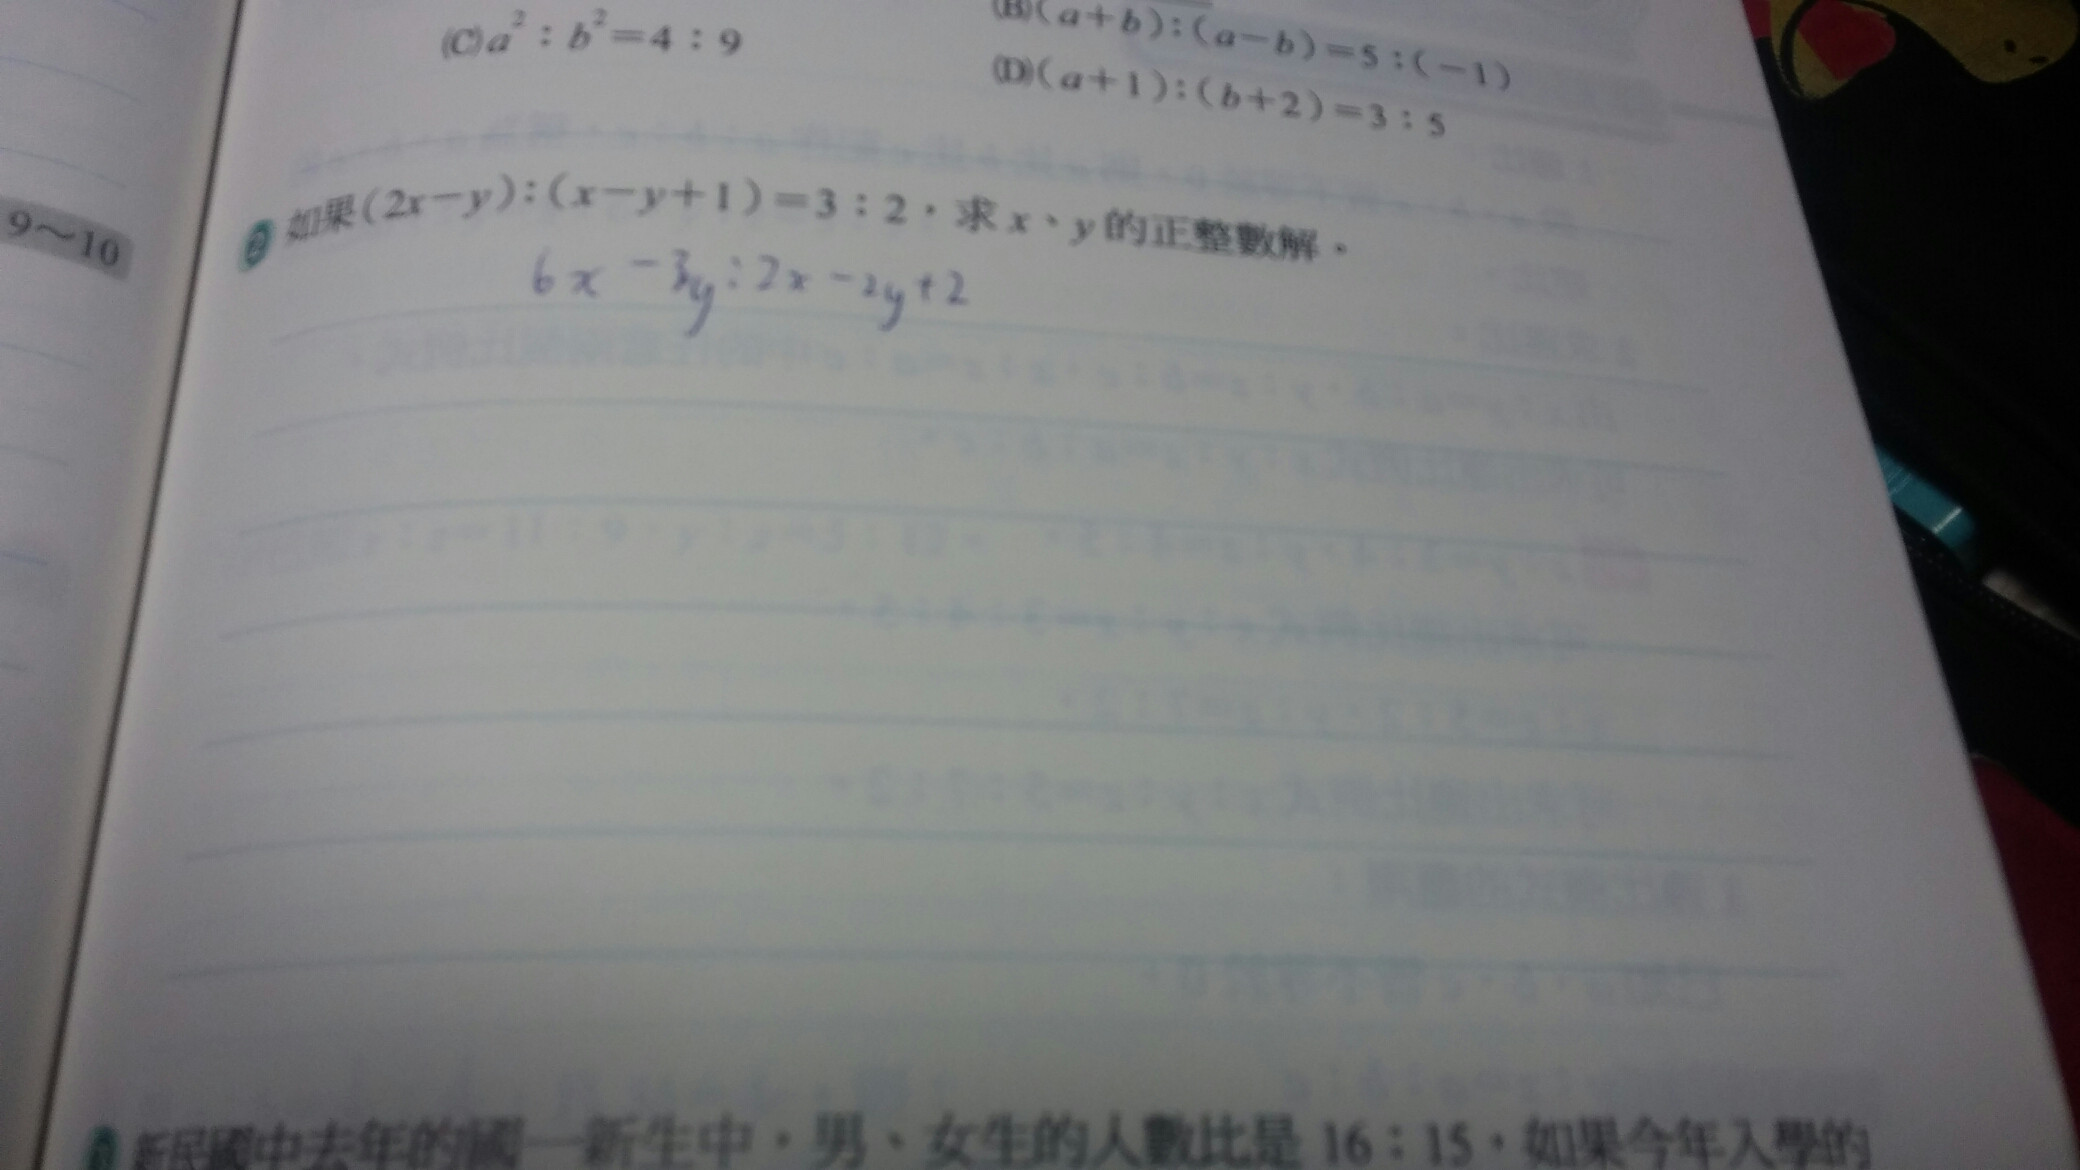 (B)(a+b):(a-b)=5:(-1)
(C)a²:b²=4:9
(D)(a+1):(b+2)=3:5
9～10
2 如果(2x-y):(x-y+1)=3:2，求x、y的正整數解。
6x-3y:2x-2y+2
新民國中去年的國一新生中，男、女生的人數比是16:15，如果今年入學的